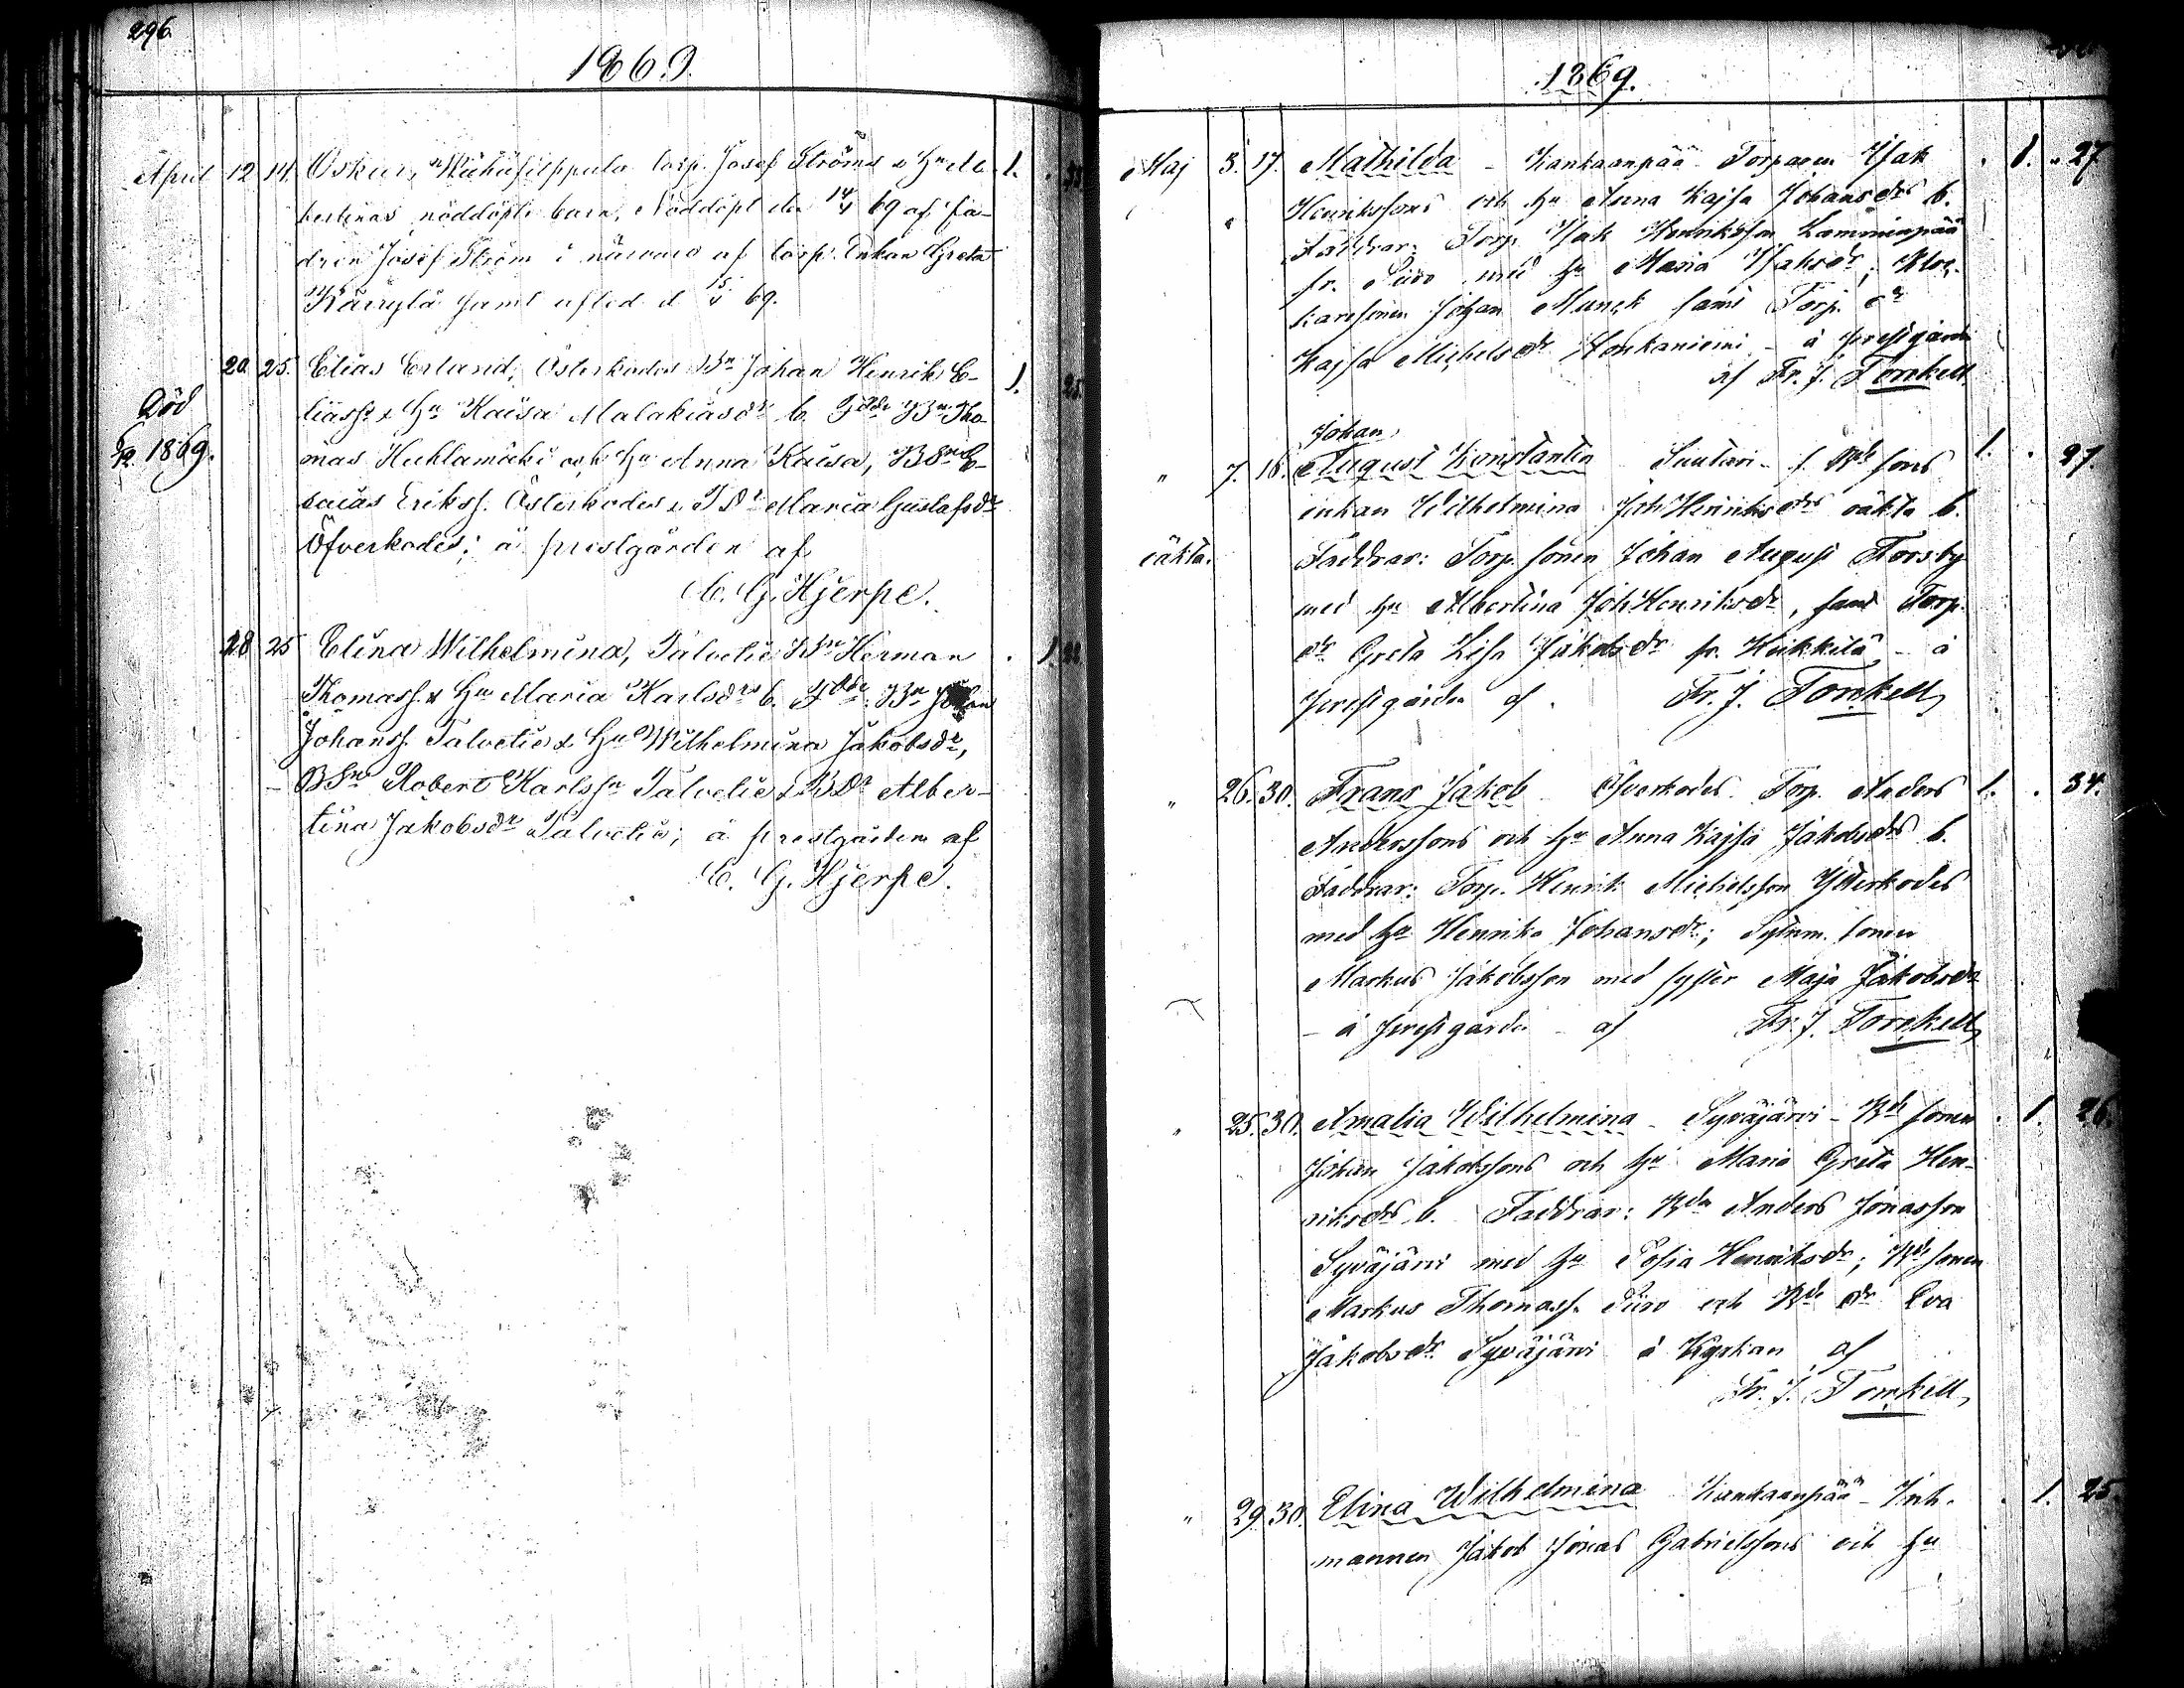 296.
1869.
April 12 14. Oskar, torp. Josef Ströms & Hu Al- 1.
bertinas nöddöpte barn, Nöddöpt den 14/4 69 af fa-
dren Josef Ström i närvaro af torp. Enkan Greta
Kärrylä samt afled d 15/4 69.
20. 25. Elias Erland, Österkodes Bn Johan Henrik E- 1. 25.
liass. & Hu Kaisa Malakiasdr b. Fddr Bn Tho-
Död
mas och Hu Anna Kaisa, BSn E-
1869.
saias Erikss. Österkodes & Dr Maria Gustafsdr
Öfverkodes; å prestgården af
C. G. Hjerpe.
28 25 Elina Wilhelmina, Talvetie Herman . 1. 22
Thomass. & Hu Maria Karlsdrs b. Fddr: Bn Johan
Johanss. Talvetie & Hu Wilhelmina Jakobsdr,
BSn Robert Karlssn Talvetie & BDr Alber-
tina Jakobsdr Talvetie; å prestgården af
C. G. Hjerpe.
1869.
Maj 3. 17. Mathilda - Kankaanpää - Torparen Isak . 1. 27
Henrikssons och Hu Anna Kajsa Johansdrs b.
Faddrar: Torp. Isak Henriksson
fr. med Hu Maria Isaksdr; Kloc-
karesonen Johan Munck samt Torp. dr
Kajsa Michelsdr Honkaniemi - å prestgården
af Fr. J. Forskell
Johan
" 7. 16. August Konstantin Suutari - f. Rde sons 1. . 27.
enkan Wilhelmina Joh Henriksdrs oäkta b.
oäkta. Faddrar: Torp. sonen Johan August Forsby
med Hu Albertina Joh Henriksdr, samt Torp.
dr Greta Lisa Jakobsdr fr. Heikkilä - å
prestgården af Fr. J. Forskell
" 26. 30. Frans Jakob - Öfverkodes. Torp. Anders 1. . 34.
Anderssons och Hu Anna Kajsa Jakobsdrs b.
Faddrar: Torp. Henrik Michelsson Ytterkodes
med Hu Henrika Johansdr; Sytnm. sonen
Markus Jakobsson med syster Maja Jakobsdr
- å prestgården - af Fr. J. Forskell
" 25. 30. Amalia Wilhelmina - Syväjärvi - Rde sonen . 1. 26.
Johan Jakobssons och Hu Maria Greta Hen-
riksdrs b. Faddrar: Rdn Anders Jonasson
Syväjärvi med Hu Sofia Henriksdr; Rde sonen
Markus Thomass. och Rde dr Eva
Jakobsdr Syväjärvi å Kyrkan af
Fr. J. Forskell
" 29. 30. Elina Wilhelmina Kankaanpää - Inh. . 1. 25.
mannen Jakob Jonas Gabrielssons och Hu